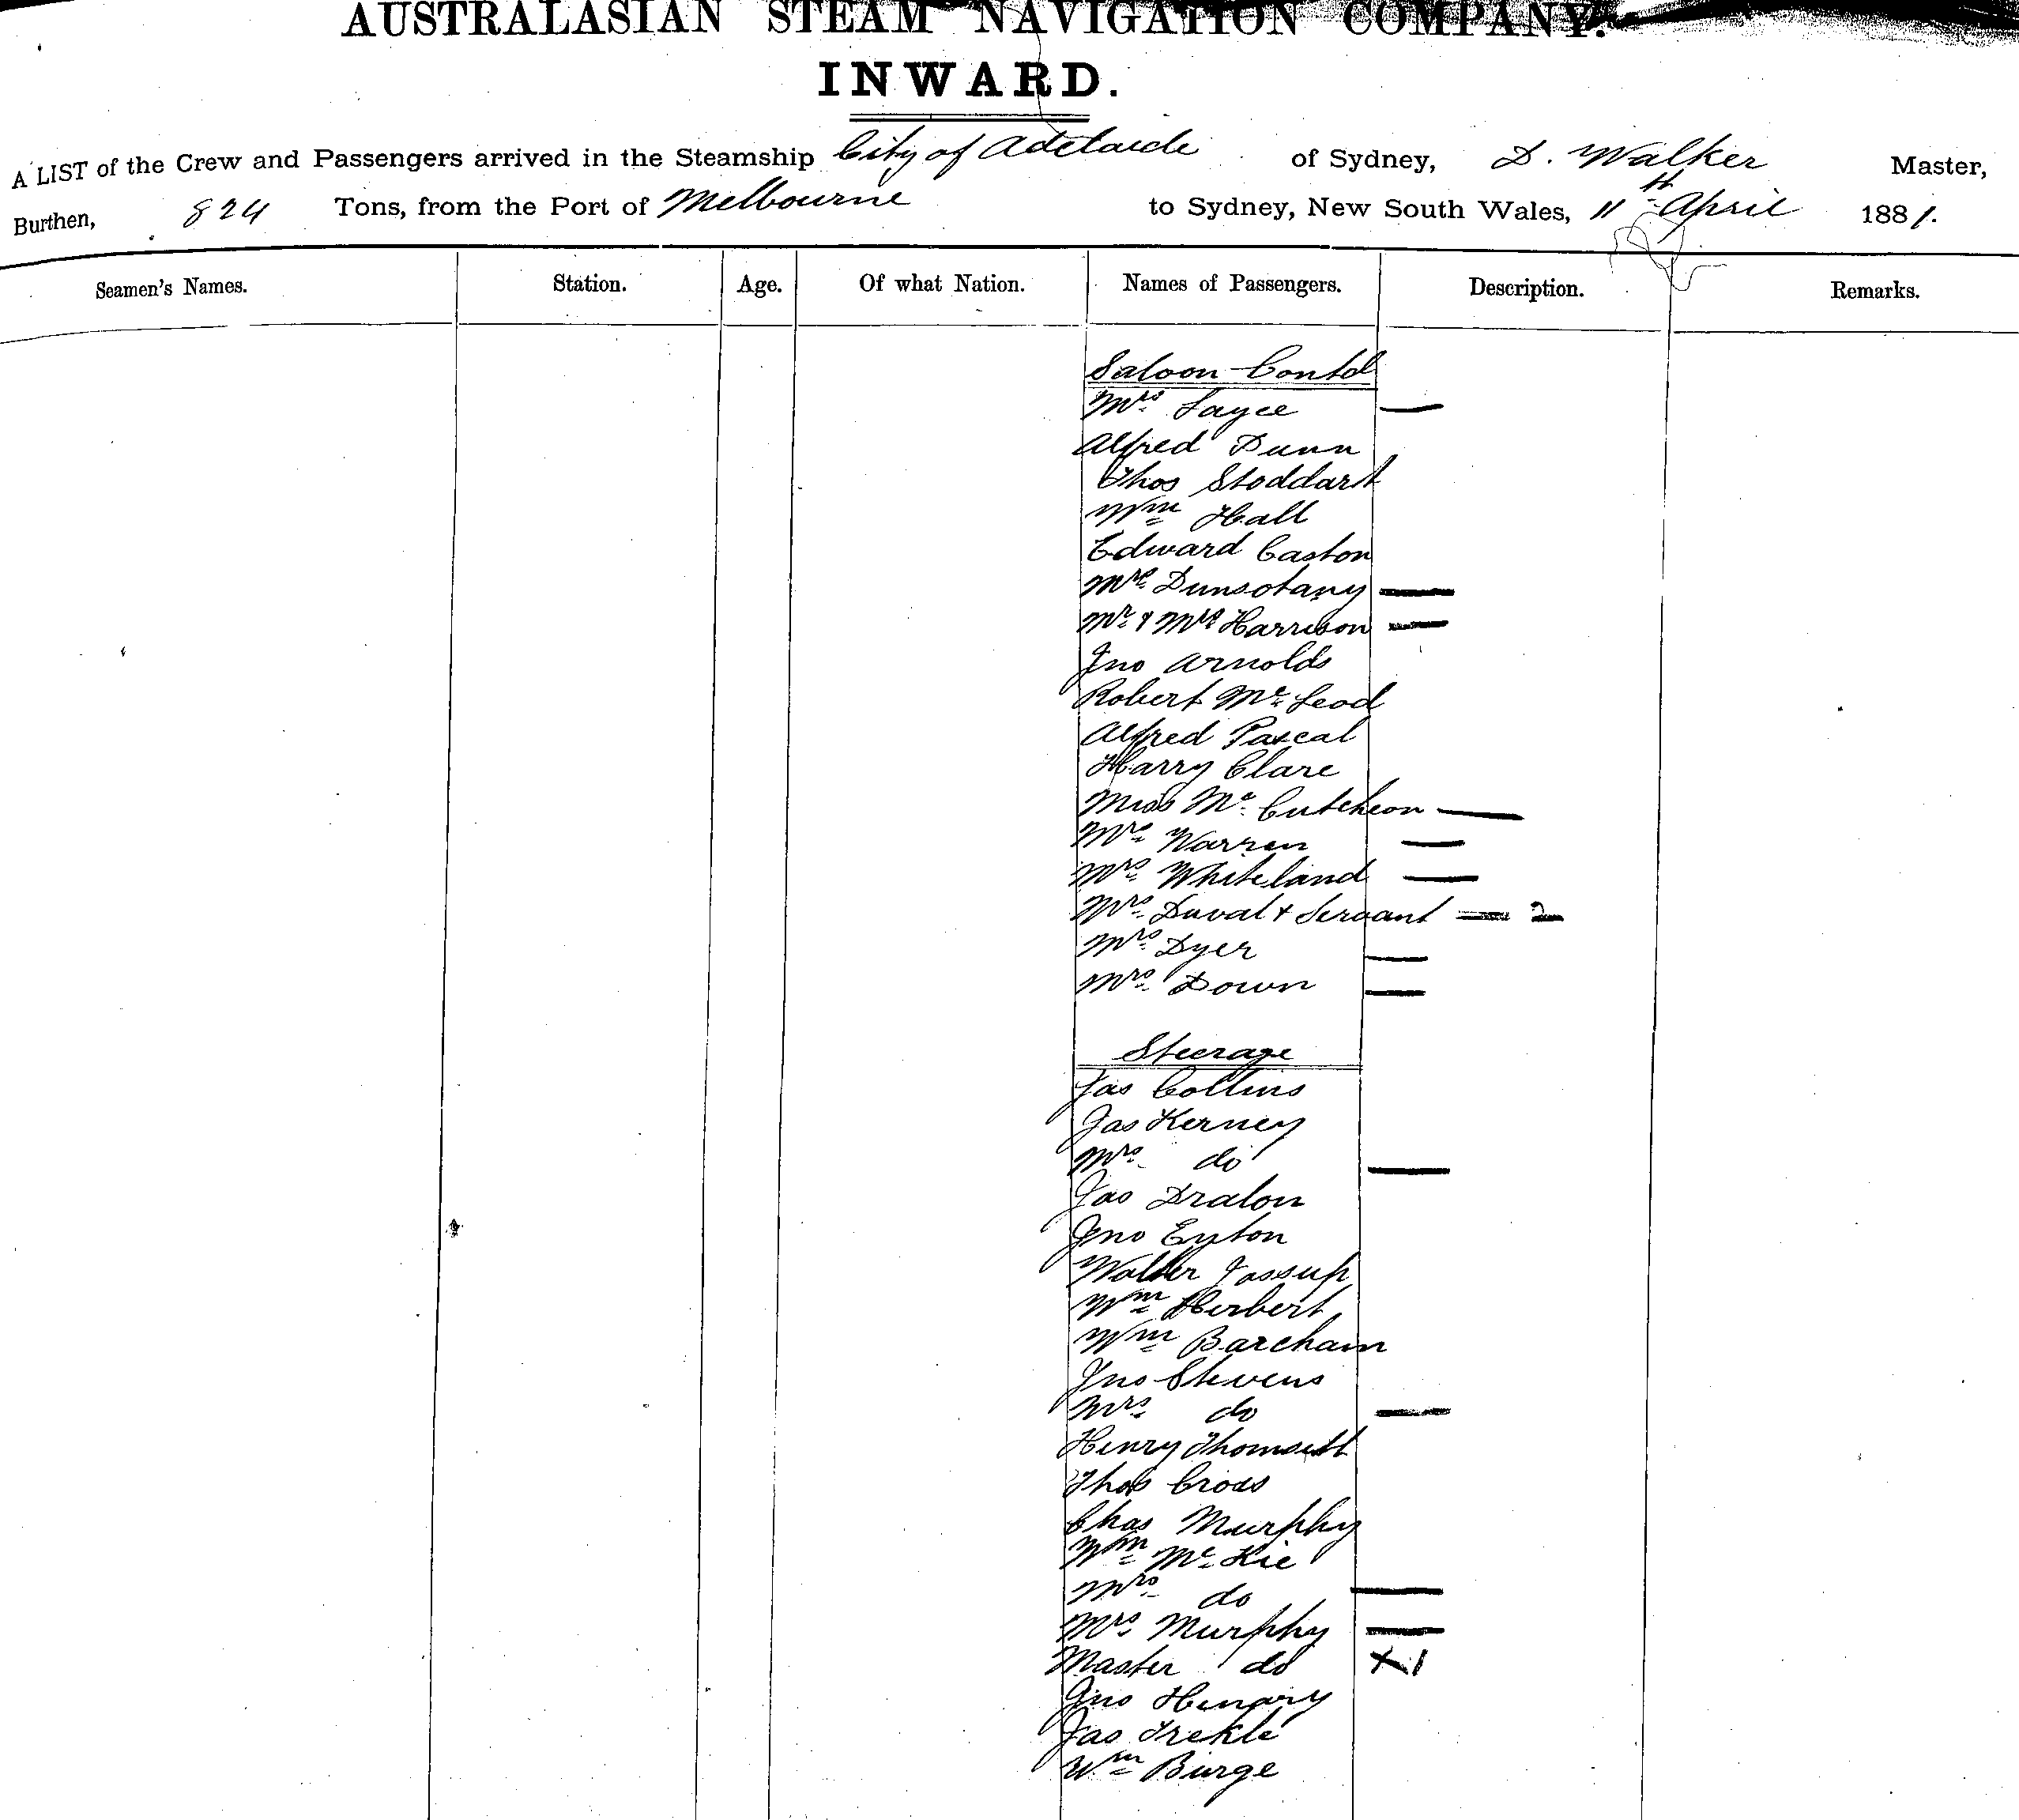 AUSTRALASIAN STEAM NAVIGATION COMPANY.
INWARD.
A LIST of the Crew and Passengers arrived in the Steamship City of Adelaide of Sydney, D. Walker Master,
Burthen, 824 Tons, from the Port of Melbourne to Sydney, New South Wales, 11th April 1881.
Seamen's Names. Station. Age. Of what Nation. Names of Passengers. Description. Remarks.
Saloon Contd
Mrs Layce —
Alfred Dunn
Thos Stoddart
Wm Hall
Edward Caston
Mrs —
Mr & Mrs Harrison —
Jno Arnolds
Robert Mc Leod
Alfred Pascal
Harry Clare
Miss Mc Cutcheon —
Mrs Warren —
Mrs Whiteland —
Mrs Duval & Servant — 2
Mrs Dyer —
Mrs Down —
Steerage
Jas Collins
Jas Kerney
Mrs do —
Jas Dralon
Jno Eyton
Walter Jassup
Wm Herbert
Wm Barcham
Jno Stevens
Mrs do —
Henry Thomsett
Thos Cross
Chas Murphy
Wm Mc Kie
Mrs do —
Mrs Murphy —
Master do X 1
Jno Henary
Jas Trekle
Wm Burge